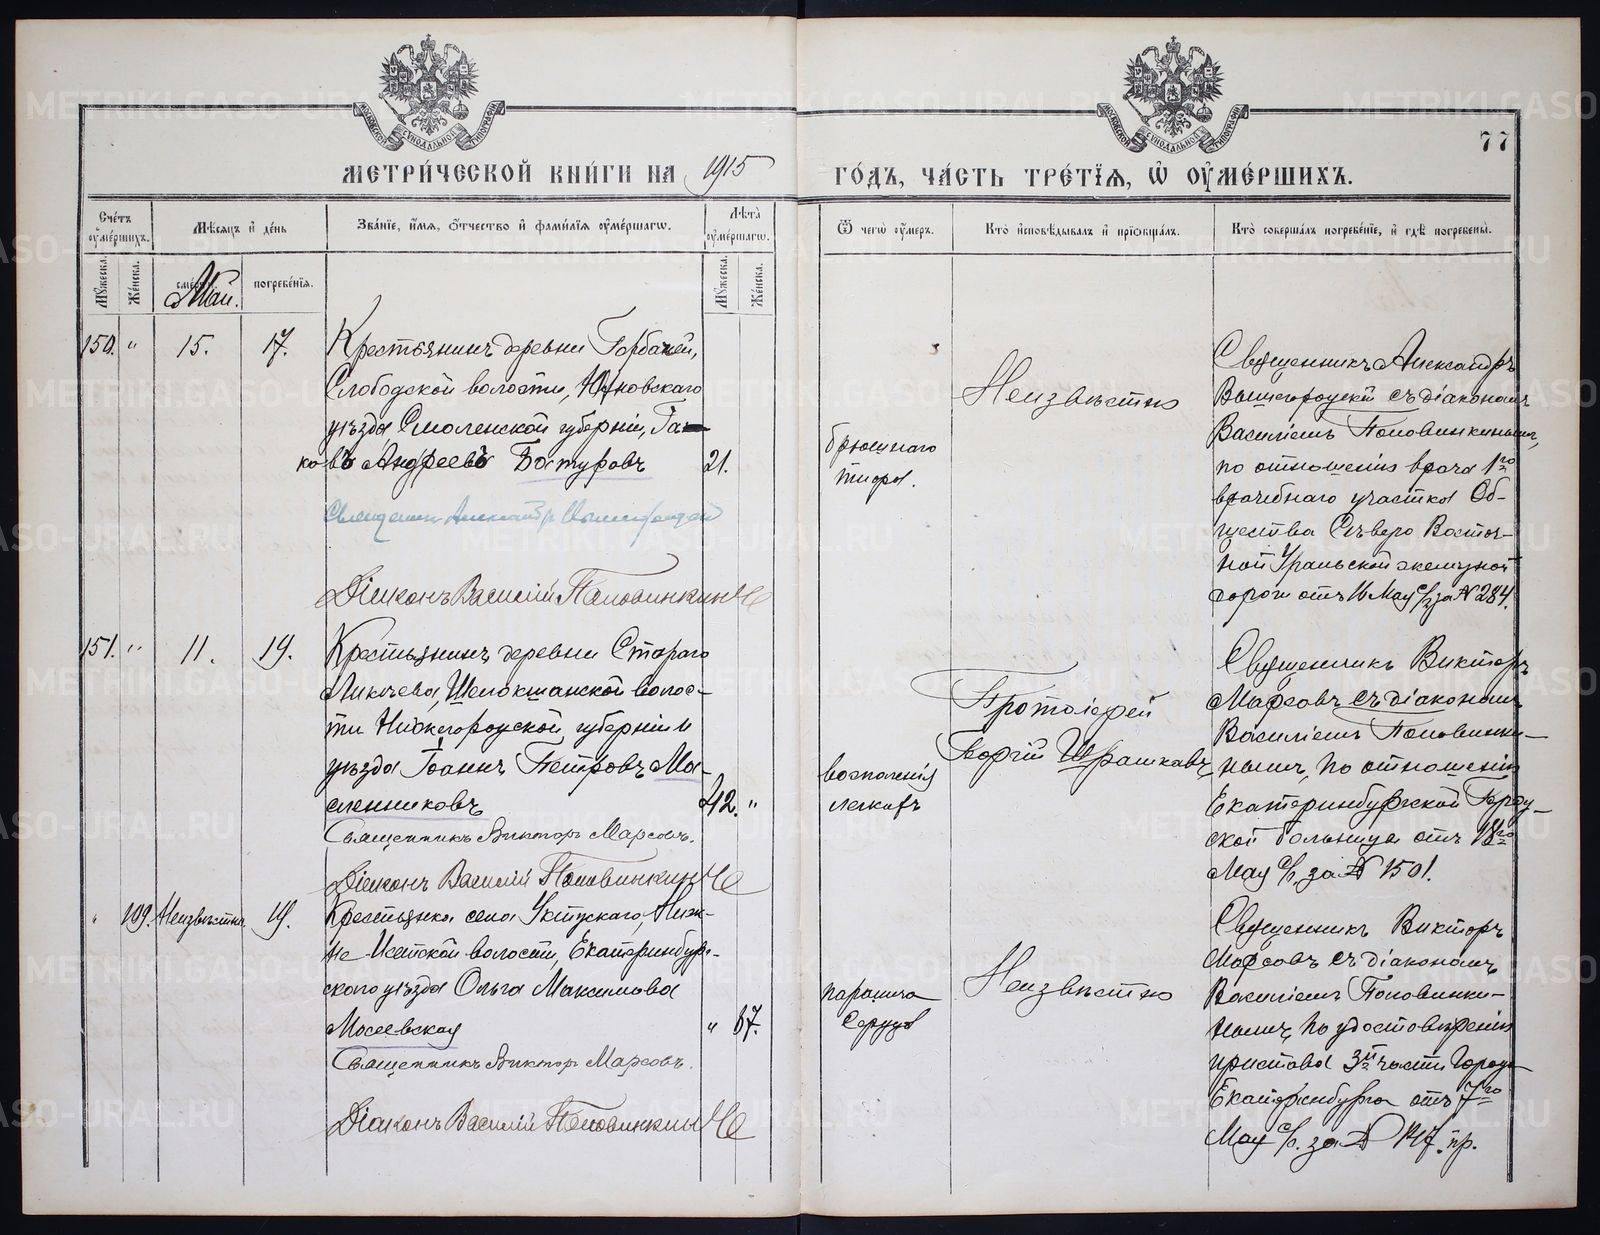 МЕТРИ́ЧЕСКОЙ КНИ́ГИ НА 1915
ГО́ДЪ, ЧА́СТЬ ТРЕ́ТІѦ, Ѡ҆ ОУ҆МЕ́РШИХЪ.
77
Сче́тъ оу҆ме́ршихъ.
Мѣ́сяцъ и҆ де́нь
Зва́нїе, и҆́мѧ, ѻ҆́тчество и҆ фами́лїѧ оу҆ме́ршагѡ.
Лѣта̀ оу҆ме́ршагѡ.
Ѿ чегѡ̀ оу҆́меръ.
Кто̀ и҆сповѣ́дывалъ и҆ прїѡбща́лъ.
Кто̀ соверша́лъ погребе́нїе, и҆ гдѣ̀ погребены̀.
Мꙋ́жеска.
Же́нска.
сме́рти.
Май.
погребе́нїѧ.
Мꙋ́жеска.
Же́нска.
150. " 15. 17.
Крестьянинъ деревни Горбачей,
Слободской волости, Юхновскаго
уѣзда, Смоленской губерніи, Га-
ковъ Андреевъ Батуровъ 21.
Священникъ Александръ Вышегородскій
Діаконъ Василій Половинкинъ
брюшнаго
тифа.
Неизвѣстно
Священникъ Александръ
Вышегородскій съ діакономъ
Василіемъ Половинкинымъ,
по отношенію врача 1го
врачебнаго участка Об-
щества Сѣверо Восточ-
ной Уральской желѣзной
дороги отъ 16 Мая с/г за № 284.
151. " 11. 19.
Крестьянинъ деревни Стараго
Ликѣева, Шелокшанской волос-
ти Нижегородской губерніи и
уѣзда Іоаннъ Петровъ Ма-
сленниковъ 42. "
Священникъ Викторъ Марсовъ.
Діаконъ Василій Половинкинъ
воспаленія
легкихъ
Протоіерей
Георгій
Священникъ Викторъ
Марсовъ съ діакономъ
Василіемъ Половинки-
нымъ, по отношенію
Екатеринбургской Город-
ской больницы отъ 18го
Мая с/г. за № 1501.
" 109. Неизвѣстно. 19.
Крестьянка села Уктускаго, Ниж-
не-Исетской волости, Екатеринбург-
скаго уѣзда Ольга Максимова
Мосеевская " 67.
Священникъ Викторъ Марсовъ.
Діаконъ Василій Половинкинъ
паралича
сердца
Неизвѣстно
Священникъ Викторъ
Марсовъ съ діакономъ
Василіемъ Половинки-
нымъ, по удостовѣренію
пристава 3й части Города
Екатеринбурга отъ 7го
Мая с/г. за № 1417. пр.
METRIKI.GASO-URAL.RU